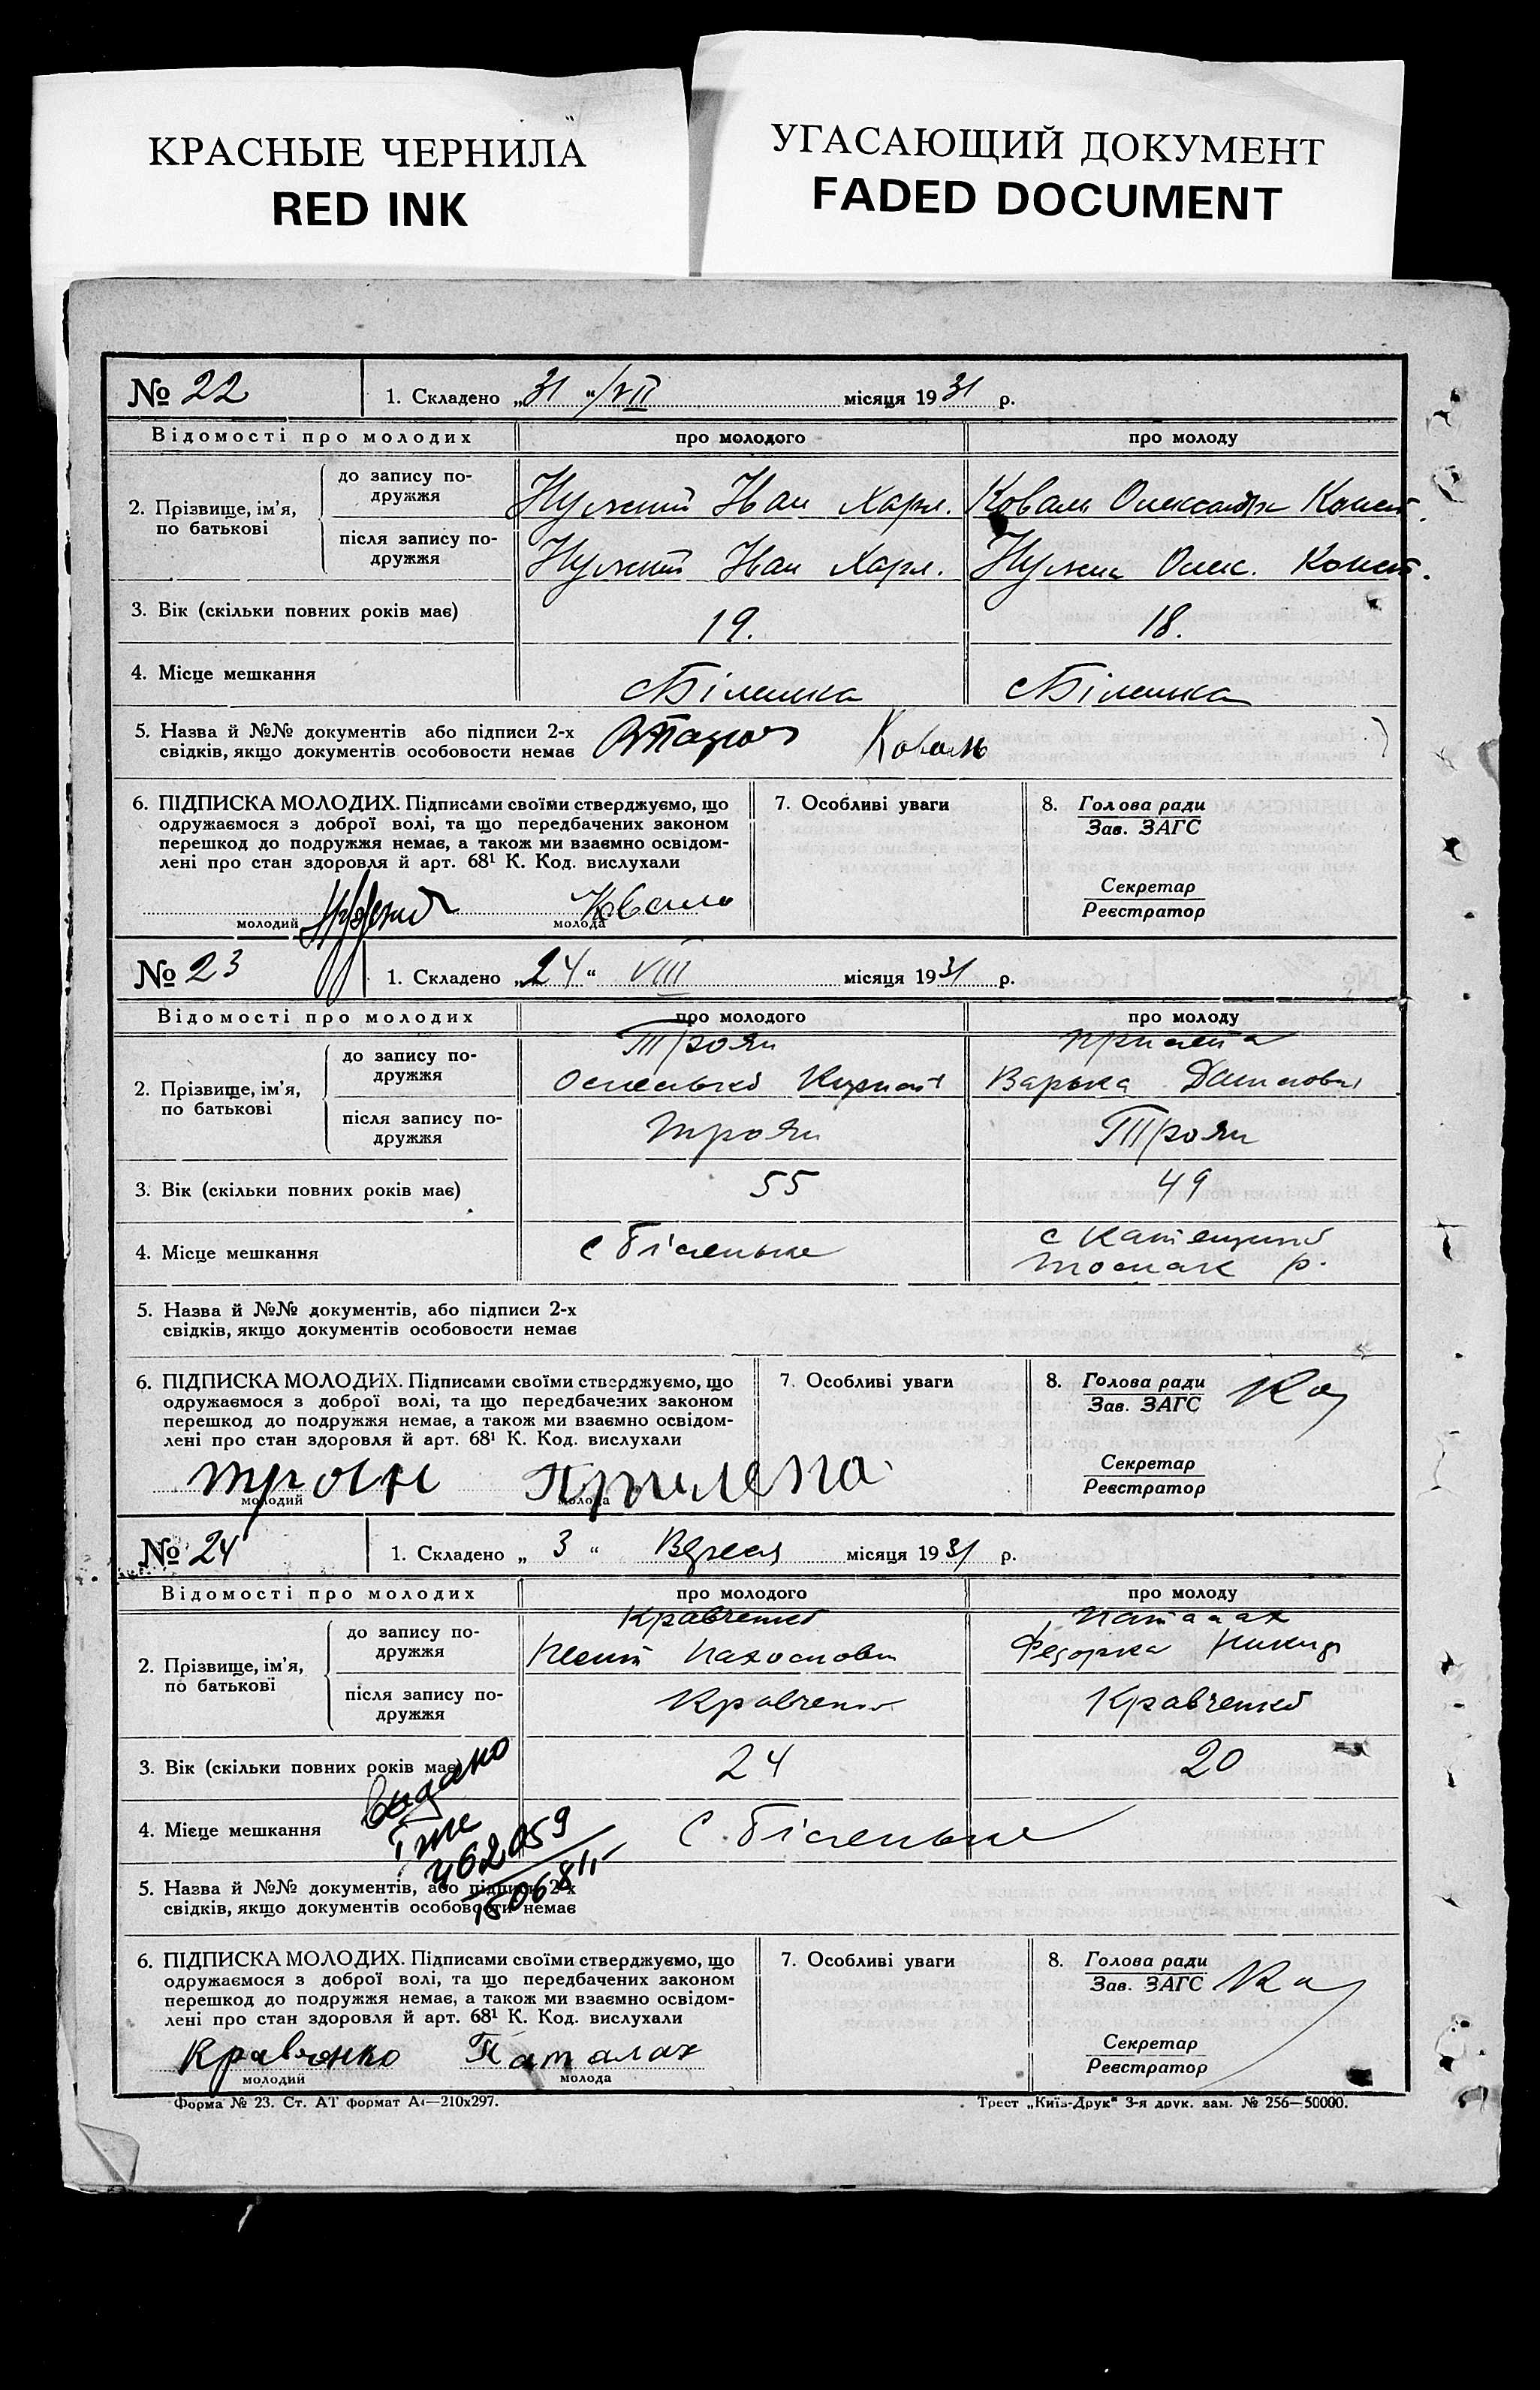 КРАСНЫЕ ЧЕРНИЛА
RED INK
УГАСАЮЩИЙ ДОКУМЕНТ
FADED DOCUMENT
№ 22
1. Складено „31“/VII місяця 1931 р.
Відомості про молодих
про молодого
про молоду
2. Прізвище, ім'я, по батькові
до запису подружжя
Іван Харл.
Коваль Олександра Конст.
після запису подружжя
Іван Харл.
Олек. Конст.
3. Вік (скільки повних років має)
19.
18.
4. Місце мешкання
с Біленька
с Біленька
5. Назва й №№ документів або підписи 2-х
свідків, якщо документів особовости немає
Коваль
6. ПІДПИСКА МОЛОДИХ. Підписами своїми стверджуємо, що
одружаємося з доброї волі, та що передбачених законом
перешкод до подружжя немає, а також ми взаємно освідом-
лені про стан здоровля й арт. 68¹ К. Код. вислухали
Коваль
молодий
молода
7. Особливі уваги
8. Голова ради
Зав. ЗАГС
Секретар
Реєстратор
№ 23
1. Складено „24“ VIII місяця 1931 р.
Відомості про молодих
про молодого
про молоду
2. Прізвище, ім'я, по батькові
до запису подружжя
Троян
Прилепа
Варька Данилов
після запису подружжя
Троян
Троян
3. Вік (скільки повних років має)
55
49
4. Місце мешкання
с Біленьке
с
Токмак р.
5. Назва й №№ документів, або підписи 2-х
свідків, якщо документів особовости немає
6. ПІДПИСКА МОЛОДИХ. Підписами своїми стверджуємо, що
одружаємося з доброї волі, та що передбачених законом
перешкод до подружжя немає, а також ми взаємно освідом-
лені про стан здоровля й арт. 68¹ К. Код. вислухали
троян Прилепа
молодий
молода
7. Особливі уваги
8. Голова ради
Зав. ЗАГС
Секретар
Реєстратор
№ 24
1. Складено „3“ Вересня місяця 1931 р.
Відомості про молодих
про молодого
про молоду
2. Прізвище, ім'я, по батькові
до запису подружжя
Кравченко
Паталах
Федорка Никиф
після запису подружжя
Кравченко
Кравченко
3. Вік (скільки повних років має)
24
20
4. Місце мешкання
с. Біленьке
видано
462059
5. Назва й №№ документів, або підписи 2-х
свідків, якщо документів особовости немає
6. ПІДПИСКА МОЛОДИХ. Підписами своїми стверджуємо, що
одружаємося з доброї волі, та що передбачених законом
перешкод до подружжя немає, а також ми взаємно освідом-
лені про стан здоровля й арт. 68¹ К. Код. вислухали
Кравченко Паталах
молодий
молода
7. Особливі уваги
8. Голова ради
Зав. ЗАГС
Секретар
Реєстратор
Форма № 23. Ст. АТ формат А4—210х297.
Трест „Київ-Друк“ 3-я друк. зам. № 256—50000.